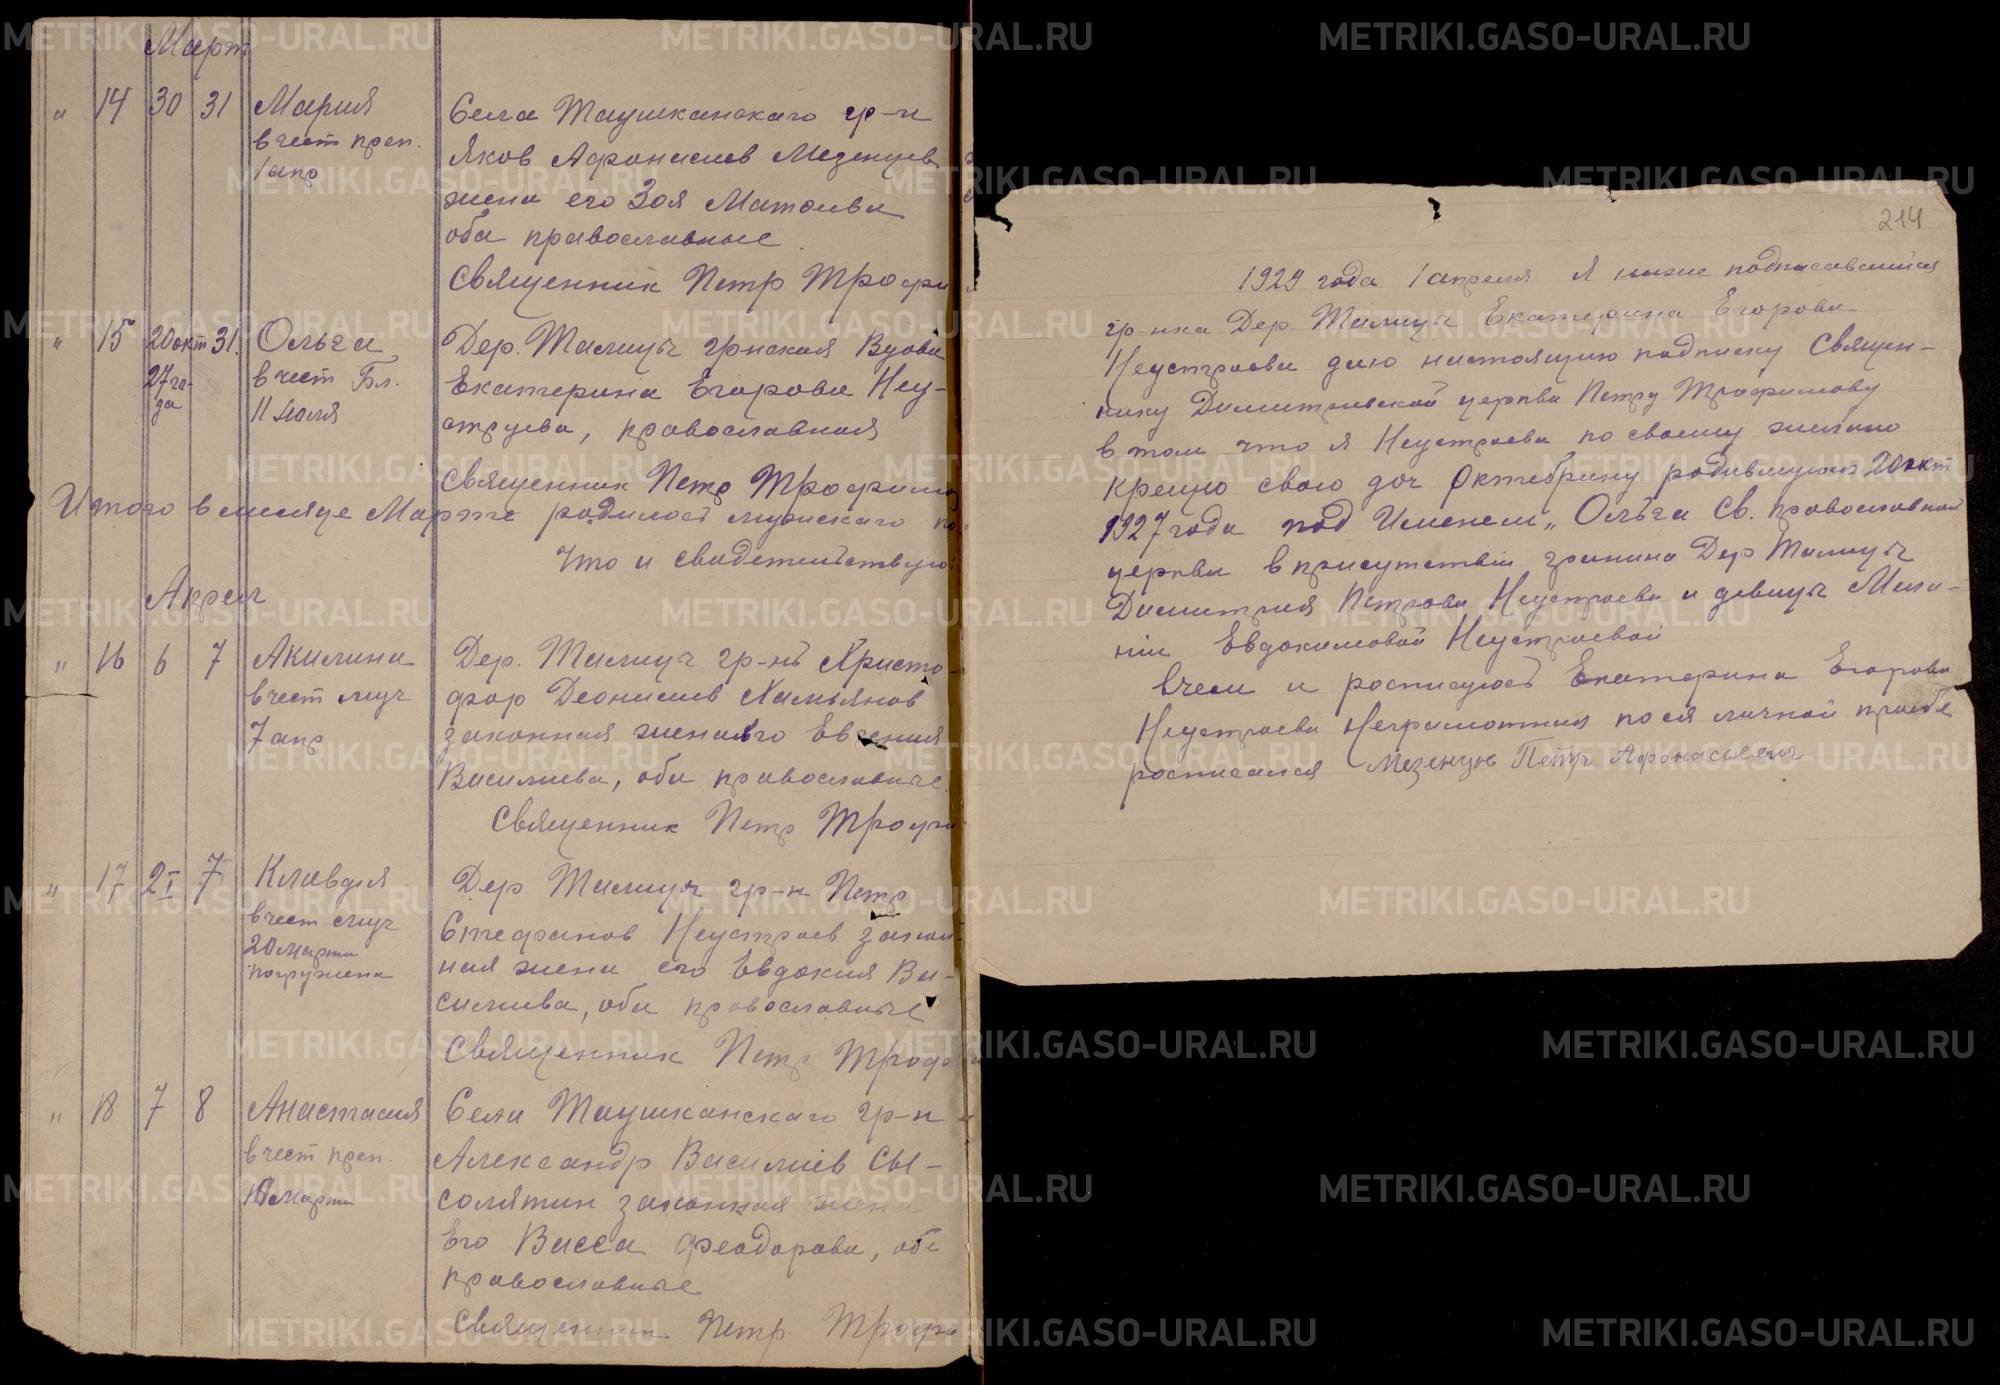 Март
" 14 30 31 Мария
в чест преп.
1 апр
Села Таушканскаго гр-н
Яков Афонасиев Мезенцев
жена его Зоя Матвиева
оба православные
Священник Петр Трофи
" 15 20 окт 27 года 31. Ольга
в чест Бл.
11 Июля
Дер. Талицы гр-нская Вдова
Екатерина Егорова Неу-
строева, православная
Священник Петр Трофимо
Итого в месяце Марте родилос мужскаго по
Что и свидетельствую:
Апрел
" 16 6 7 Акилина
в чест муч
7 апр
Дер. Талицы гр-нъ Христо-
фор Деонисиев Хамьянов
законная жена его Евгения
Василиева, оба православные.
Священник Петр Трофи
" 17 2 I 7 Клавдия
в чест муч
20 марта
погружена
Дер Талицы гр-н Петр
Стефанов Неустроев закон-
ная жена его Евдокия Ва-
силиева, оба православные
Священник Петр Трофи
" 18 7 8 Анастасия
в чест преп.
10 марта
Села Таушканскаго гр-н
Александр Василиев Сы-
солятин законная жена
Его Васса Феодорова, обе
православные
Священник Петр. Трофи
214
1929 года 1 апреля Я ниже подписавшийся
гр-нка Дер. Талицы Екатерина Егорова
Неустроева даю настоящию подписку Священ-
нику Димитриевской церкви Петру Трофимову
в том что я Неустроева по своему желанию
крещу свою доч Октебрину родившуюся 20 окт
1927 года под Именем „Ольга Св. православной
церкви в присутствии гранина Дер Талицы
Димитрия Петрова Неустроева и девицы Мела-
нии Евдокимовой Неустроевой
В чем и росписуюсь Екатерина Егорова
Неустроева Неграмотная по ея личной прозбе
росписался Мезенцов Петр Афонасьевич
METRIKI.GASO-URAL.RU